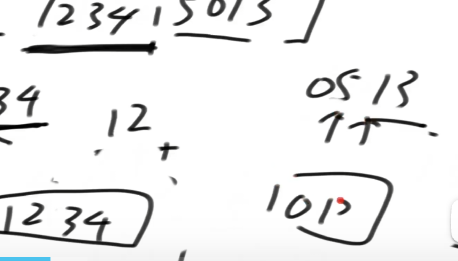 1234, 5013]
34 12 0513
+
1234 101